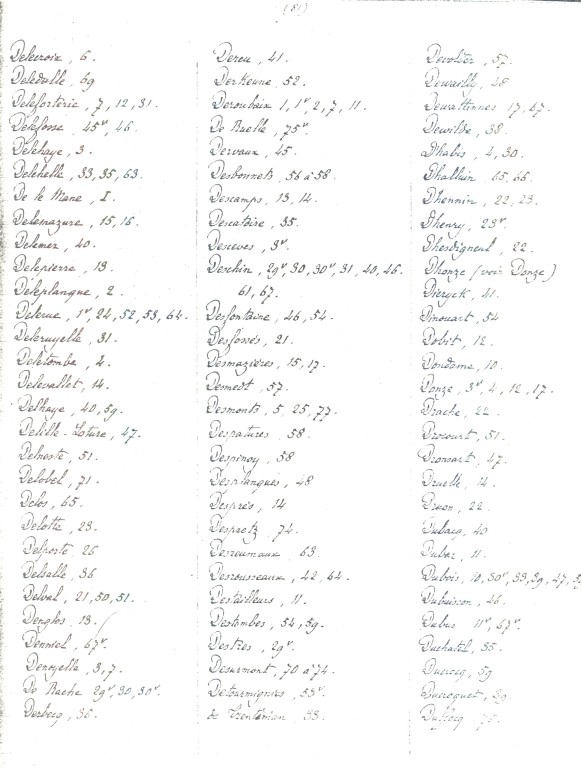 (81)
Delecroix, 6.
Deledalle 69
Deleforterie, 7, 12, 31.
Delefosse 45v, 46.
Delehaye, 3.
Delehelle, 33, 35, 63.
De le Mane, I.
Delemazure, 15, 16.
Delemer, 40.
Delepierre, 13.
Deleplanque, 2.
Delerue, 1v, 24, 52, 53, 64.
Deleruyelle, 31.
Deletombe, 4.
Delevallet, 14.
Delhaye, 40, 59.
Delille-Loture, 47.
Delneste, 51.
Delobel, 71.
Delos, 65.
Delotte, 23.
Delporte 26
Delsalle, 36
Delval, 21, 50, 51.
Denglos, 13.
Denniel, 67v.
Denoyelle, 3, 7.
De Rache 29v, 30, 30v.
Derbecq, 36.
Dereu, 41.
Derkenne, 52.
Deroubaix 1, 1v, 2, 7, 11.
De Ruelle, 75v.
Dervaux, 45.
Desbonnets, 56 à 58.
Descamps, 13, 14.
Descatoire, 35.
Desceves, 3v.
Deschin, 29v, 30, 30v, 31, 40, 46.
61, 67.
Desfontaine, 46, 54.
Desfossés, 21.
Desmazières, 15, 17.
Desmedt, 57.
Desmonts, 5, 25, 77.
Despatures, 58.
Despinoy, 58
Desplanques, 48
Després, 14
Despretz, 74.
Desreumaux 63
Desrousseaux, 42, 64.
Destailleurs, 11.
Destombes, 54, 59.
Destres, 29v.
Desurmont, 70 à 74.
Detourmignies, 53v.
de Trentinian 33.
Devoldér, 57.
Dewailly, 48
Dewattinnes 17, 67.
Dewilde, 38.
Dhabis, 4, 30.
Dhalluin 65, 66.
Dhennin, 22, 23.
Dhenry, 23v.
Dhesdigneul, 22.
Dhonze (voir Donze)
Dieryck, 41.
Dinouart, 54
Dobit, 12.
Dondaine, 10.
Donze, 3v, 4, 12, 17.
Drache, 22.
Drocourt, 51.
Dromart, 47.
Druelle, 14.
Druon, 22.
Dubacq, 40
Dubar, 11.
Dubois, 10, 30v, 33, 39, 47, 52
Dubuisson, 46.
Dubus 11v, 67v.
Duchatel, 35.
Ducrocq, 59
Ducroquet, 39